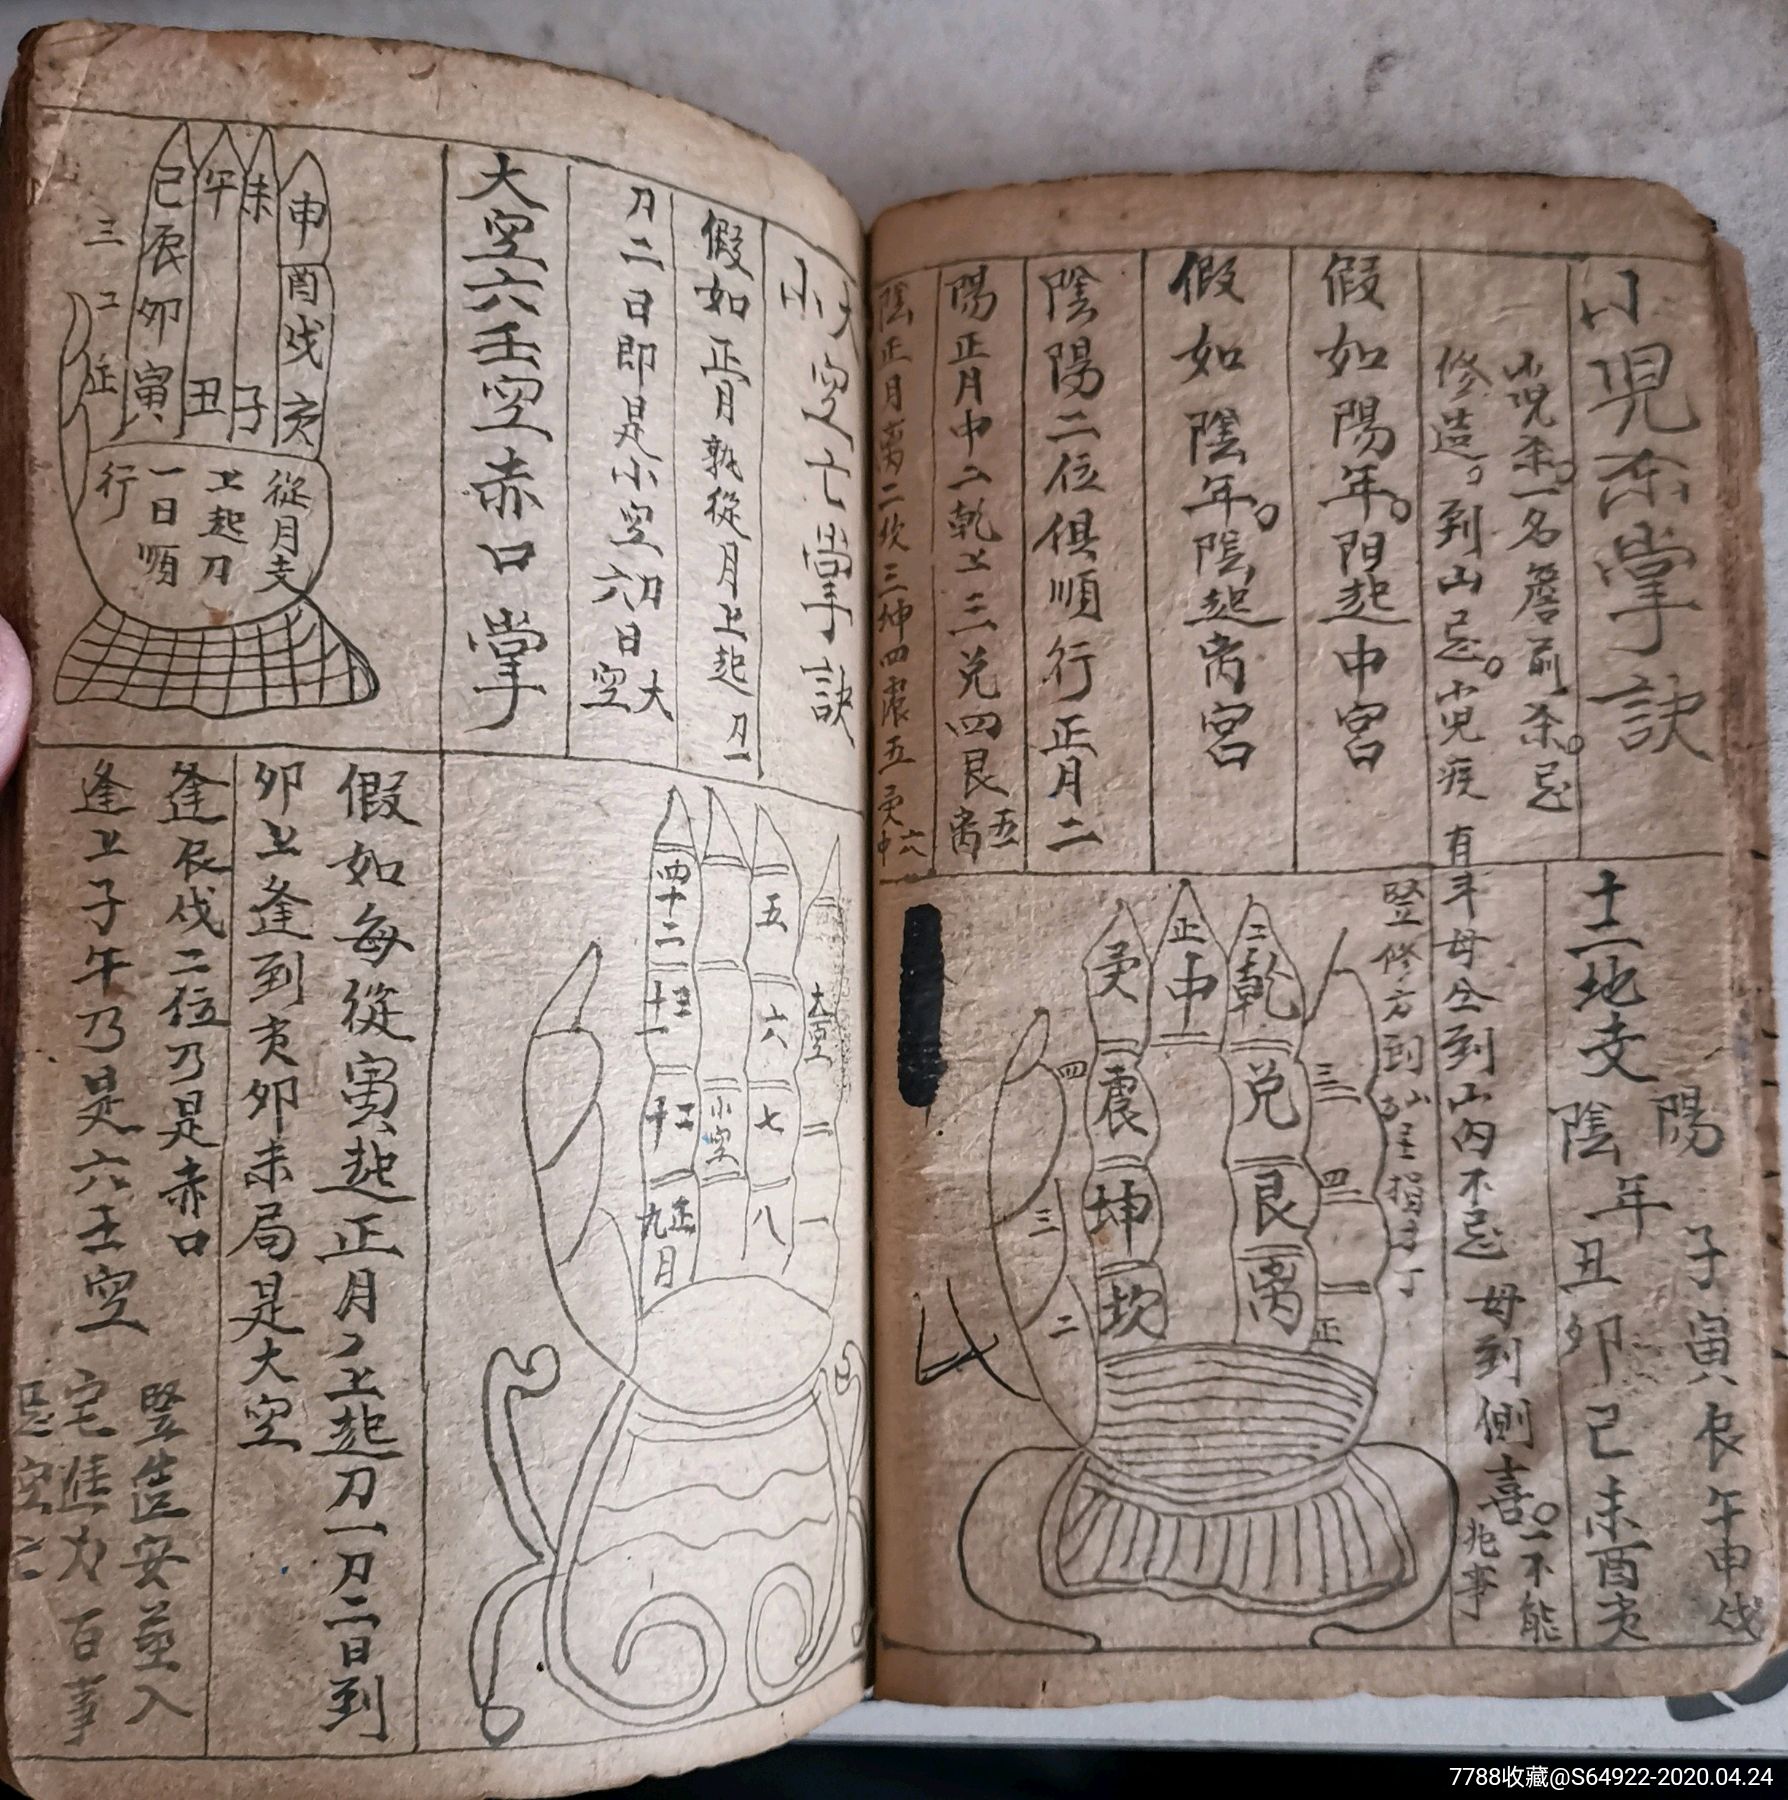 小児杀掌訣
小児杀。一名簷前杀。忌
修造。到山忌。小児疾
假如陽年。陽起中宮
假如陰年。陰起离宮
陰陽二位俱順行正月二
陽正月中二乾上三兑四艮五离
陰正月离二坎三坤四震五
十二地支
陽年子寅辰午申戌
陰年丑卯巳未酉亥
到山内不忌
母到側喜。一不能
兆事
竪修方到山
正中
二乾
三
兑
四
艮
一
离
正
震
坤
坎
四
三
二
大小空亡掌訣
假如正月就從月上起初一
初二日即是小空六初日大空
大空六壬空赤口掌
申酉戌亥
未
午
巳辰卯寅
丑
子
三
從月支
上起初
一日順
行
四十二
五
六
七
八
二
一
小空
正九月
假如每從寅起正月月上起初一初二日到
卯上逢到亥卯未局是大空
逢辰戌二位乃是赤口
逢上子午乃是六壬空
竪造安葬入
宅進火百事
忌空亡
7788收藏@S64922-2020.04.24